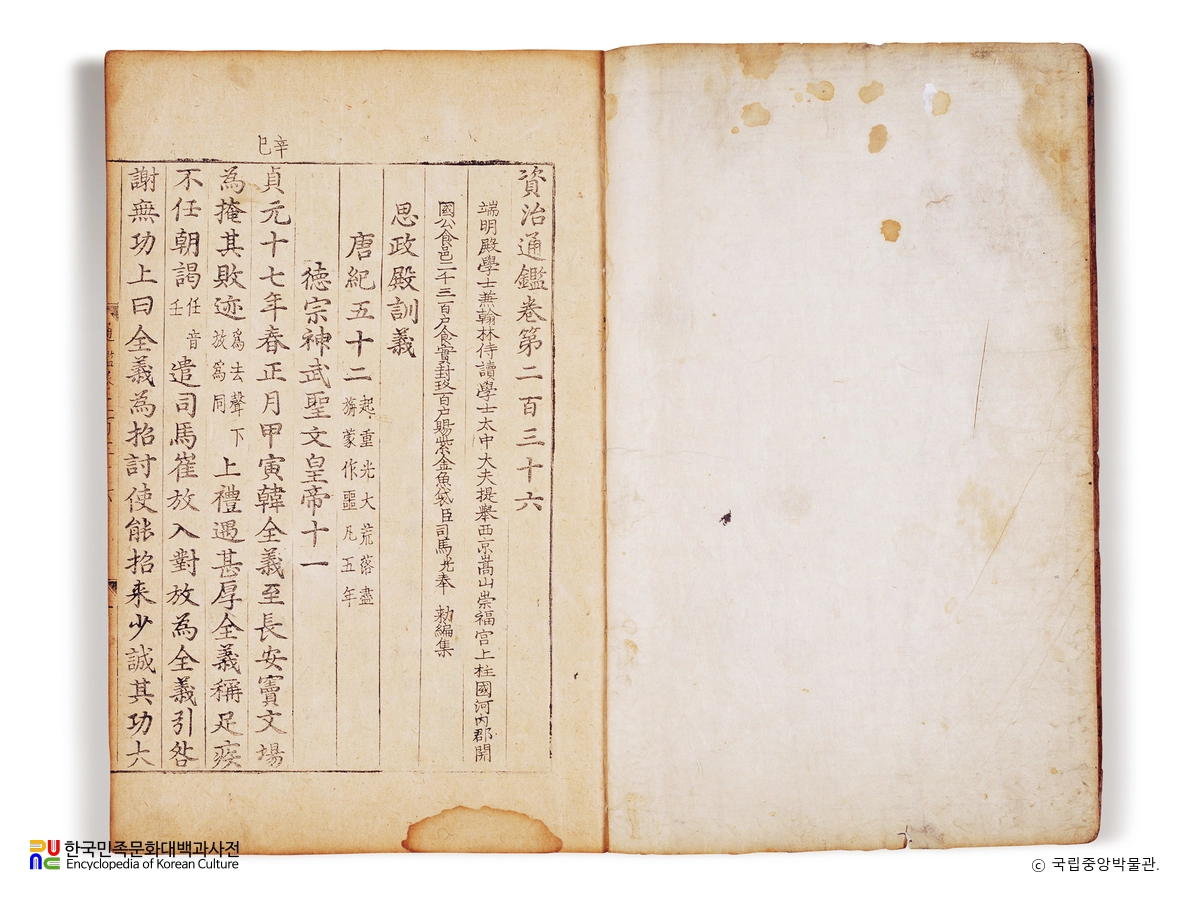 辛巳
資治通鑑卷第二百三十六
端明殿學士兼翰林侍讀學士太中大夫提舉西京嵩山崇福宮上柱國河內郡開
國公食邑二千三百户食實封玖百户賜紫金魚袋臣司馬光奉 勑編集
思政殿訓義
唐紀五十二 起重光大荒落盡旃蒙作噩凡五年
德宗神武聖文皇帝十一
貞元十七年春正月甲寅韓全義至長安竇文場
為掩其敗迹 爲去聲下放爲同 上禮遇甚厚全義稱足疾
不任朝謁 任音壬 遣司馬崔放入對放為全義引咎
謝無功上曰全義為招討使能招来少誠其功大
한국민족문화대백과사전
Encyclopedia of Korean Culture
ⓒ 국립중앙박물관.